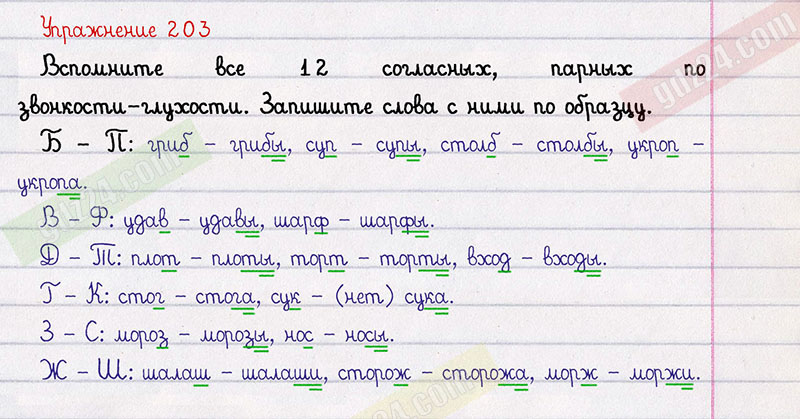 Упражнение 203
Вспомните все 12 согласных, парных по
звонкости-глухости. Запишите слова с ними по образцу.
Б - П: гриб - грибы, суп - супы, столб - столбы, укроп -
укропа.
В - Ф: удав - удавы, шарф - шарфы.
Д - Т: плот - плоты, торт - торты, вход - входы.
Г - К: стог - стога, сук - (нет) сука.
З - С: мороз - морозы, нос - носы.
Ж - Ш: шалаш - шалаши, сторож - сторожа, морж - моржи.
gdz24.com
gdz24.com
gdz24.com